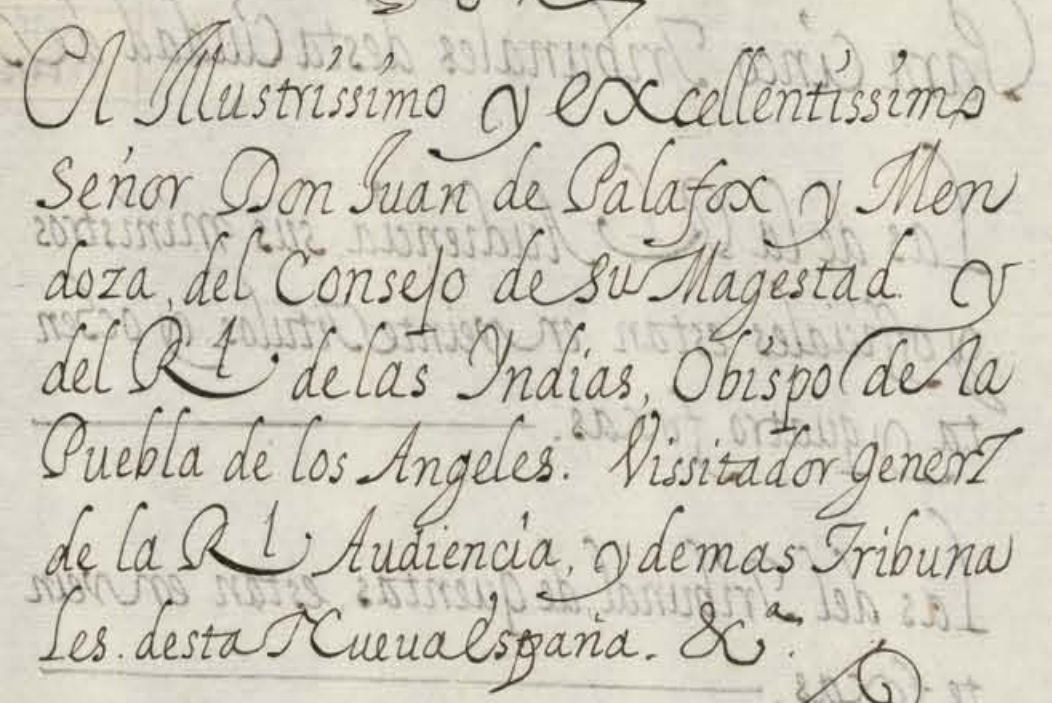 El Illustrissimo y excellentissimo
Señor Don Juan de Palafox y Men
doza, del Consejo de su Magestad. y
del Rl. de las Yndias, Obispo de la
Puebla de los Angeles. Vissitador generl
de la Rl Audiencia, y demas Tribuna
les. desta Nueua España. &a.